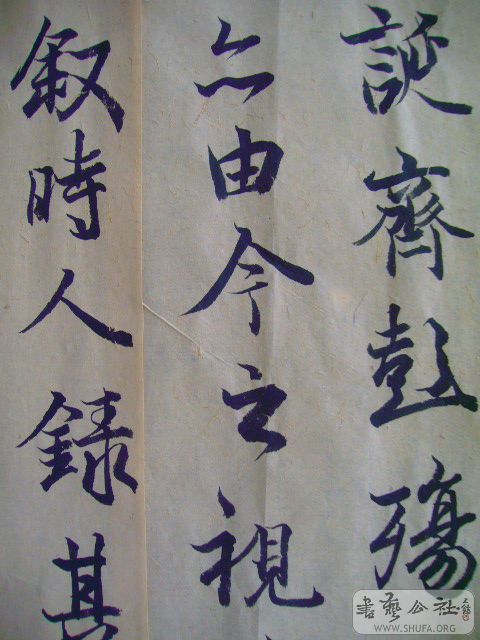 誕齊彭殤
亦由今之視
叙時人録其
書藝公社
WWW.SHUFA.ORG